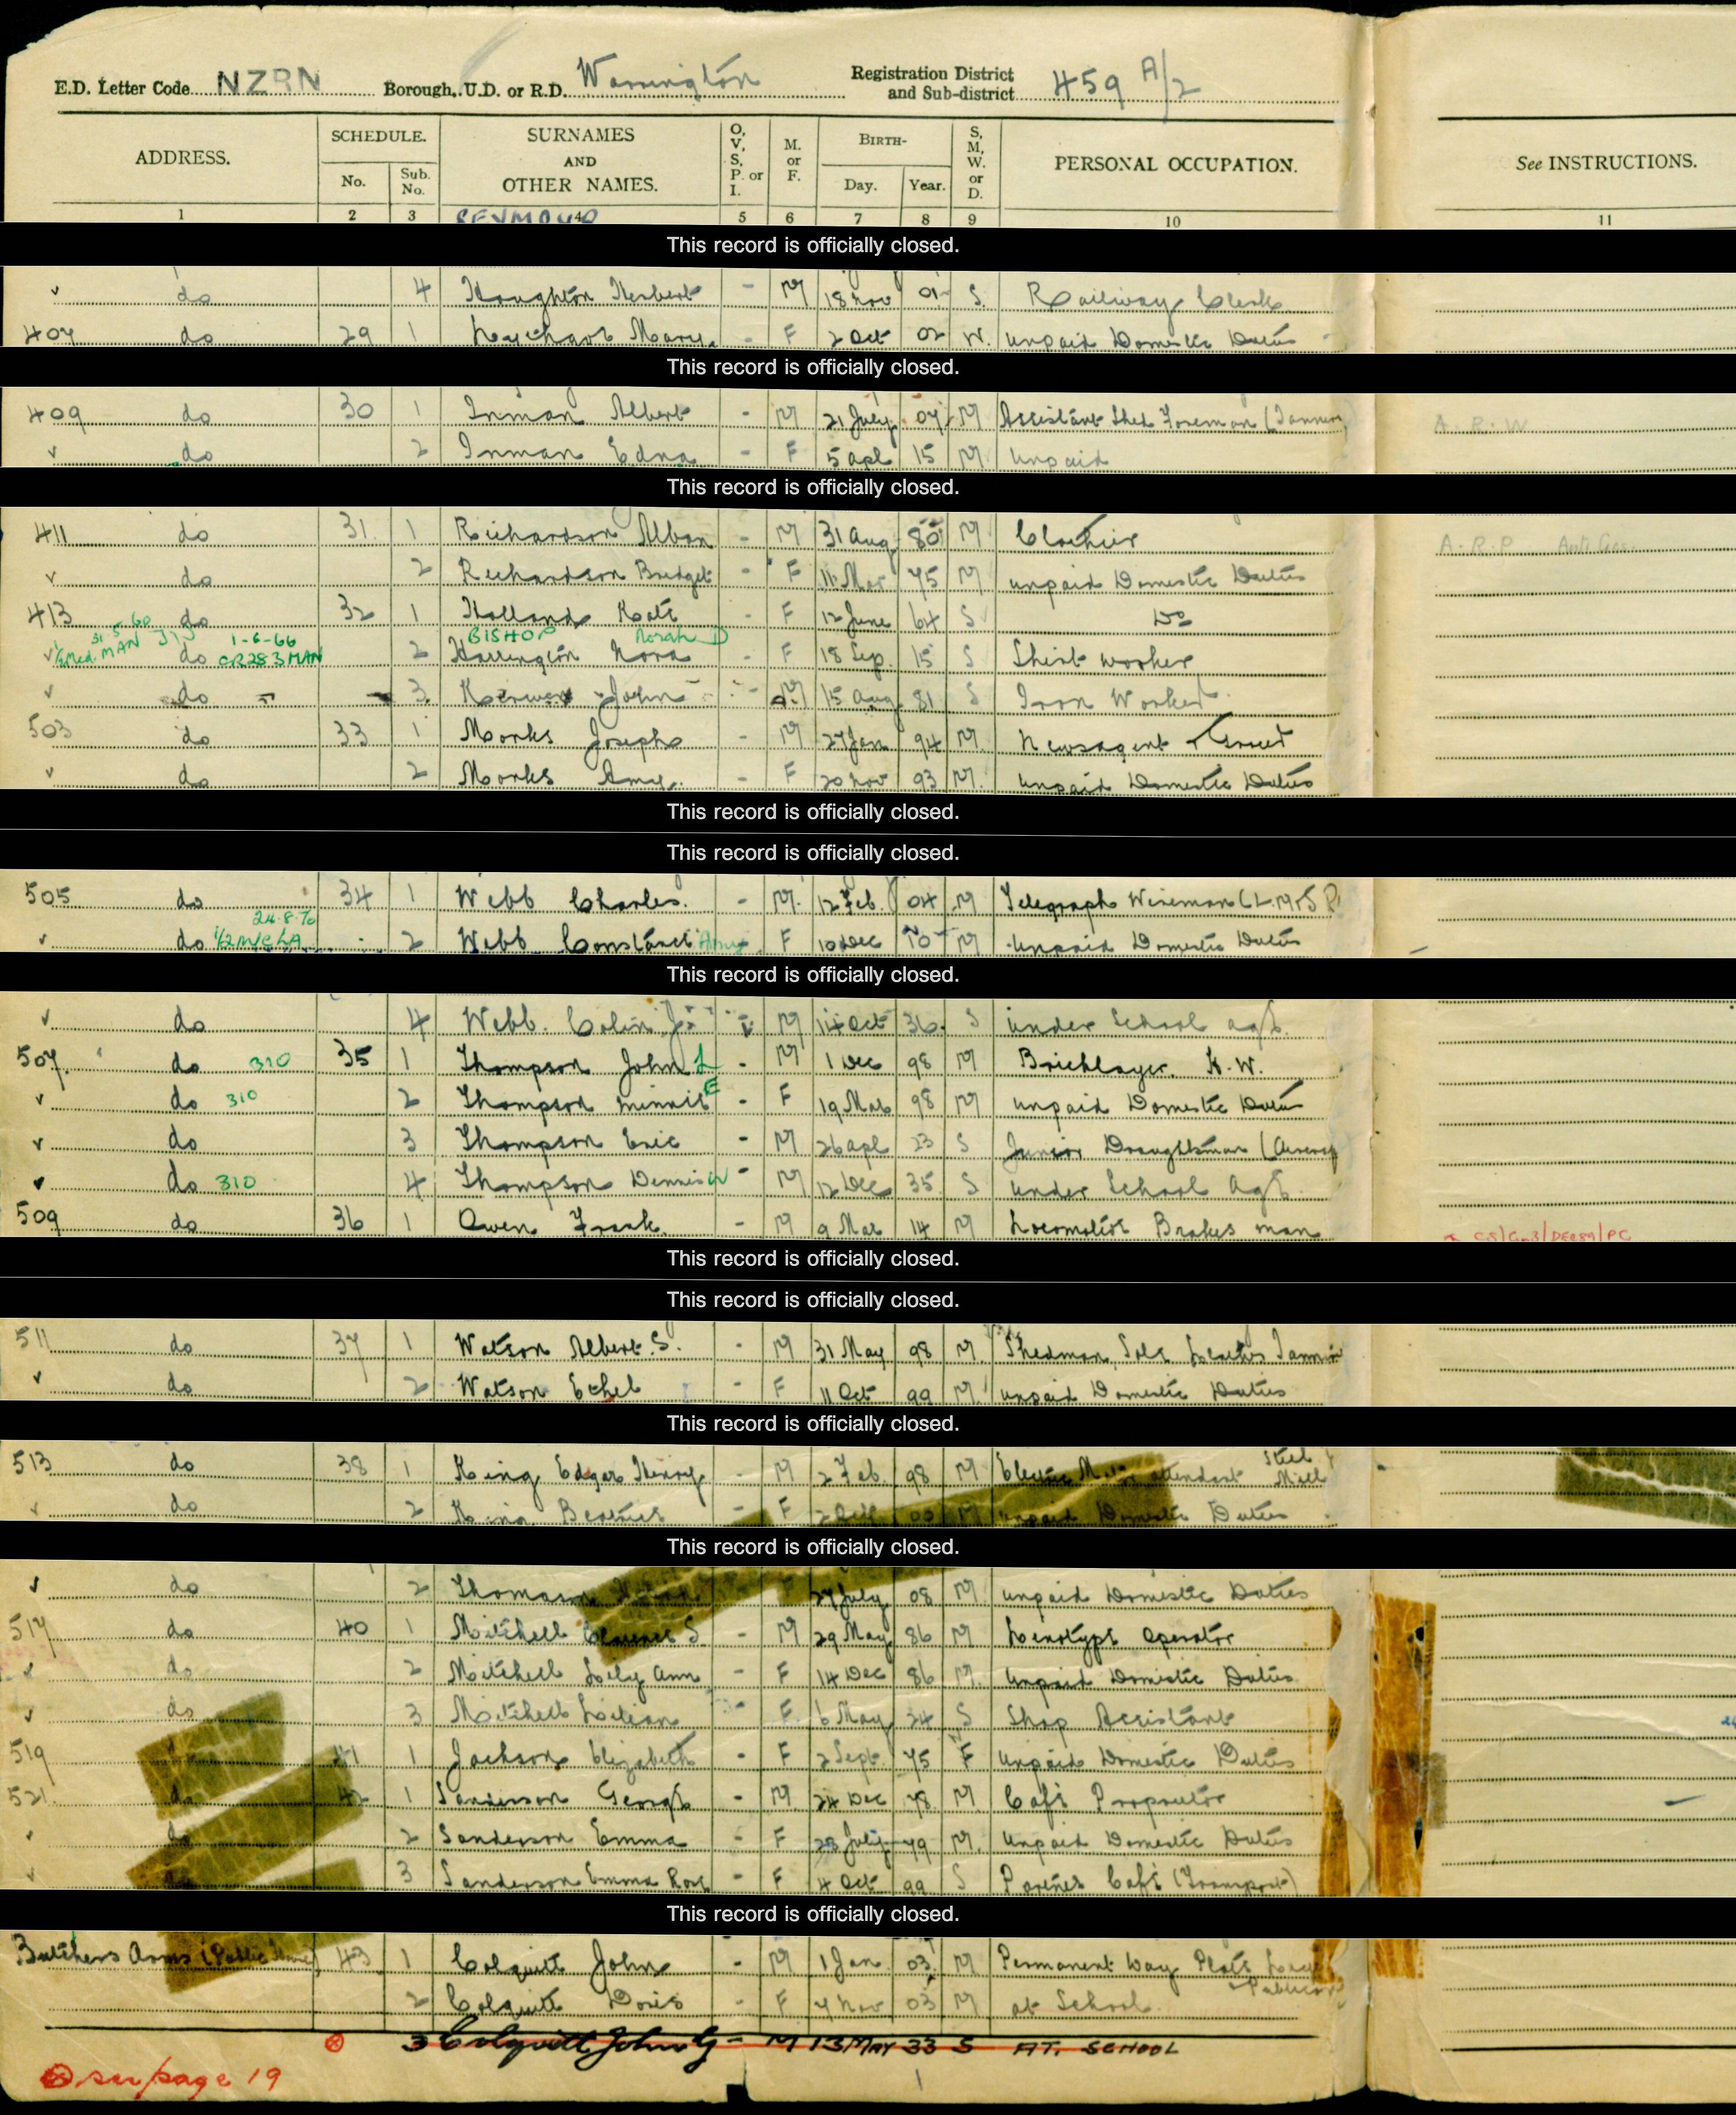 E.D. Letter Code NZRN Borough, U.D. or R.D. Warrington Registration District and Sub-district 459 A/2
ADDRESS. SCHEDULE. No. Sub. No. SURNAMES AND OTHER NAMES. O, V, S, P. or I. M. or F. BIRTH- Day. Year. S, M, W. or D. PERSONAL OCCUPATION. See INSTRUCTIONS.
1 2 3 4 5 6 7 8 9 10 11
SEYMOUR
This record is officially closed.
✓ do 4 Houghton Herbert - M 18 Nov 01 S. Railway Clerk
407 do 29 1 Mary - F 2 Oct 02 W. Unpaid Domestic Duties
This record is officially closed.
409 do 30 1 Inman Albert - M 21 July 07 M Assistant Shed Foreman (Tannery) A.R.W
✓ do 2 Inman Edna - F 5 Apl 15 M Unpaid
This record is officially closed.
411 do 31 1 Richardson Alban - M 31 Aug 80 M Clothier A.R.P Anti Gas
✓ do 2 Richardson Bridget - F 11 Mar 75 M unpaid Domestic Duties
413 do 32 1 Holland Kate - F 12 June 64 S Do
31.5.60 1-6-66 BISHOP Norah D
✓ MAN do CR283 MAN 2 Harrington Nora - F 18 Sep 15 S Shirt worker
✓ do 3 Kerwen John - M 15 Aug 81 S Iron Worker
503 do 33 1 Monks Joseph - M 27 Jan 94 M Newsagent
✓ do 2 Monks Amy - F 20 Nov 93 M. Unpaid Domestic Duties
This record is officially closed.
This record is officially closed.
505 do 34 1 Webb Charles. - M. 12 Feb. 04 M Telegraph Wireman (L.M.S R
24.8.70
✓ do 2 Webb Constance Amy F 10 Dec 10 M Unpaid Domestic Duties
This record is officially closed.
✓ do 4 Webb. Colin J M 14 Oct 36 S under School age.
507 do 310 35 1 Thompson John L - M 1 Dec 98 M Bricklayer. H.W.
✓ do 310 2 Thompson Minnie E - F 19 Mar 98 M unpaid Domestic Duties
✓ do 3 Thompson Eric - M 26 Apl 23 S Junior Draughtsman (Aircraft
✓ do 310 4 Thompson Dennis W - M 12 Dec 35 S under School age.
509 do 36 1 Owen Frank. - M 9 Mar 14 M Locomotive Brakes man
This record is officially closed.
This record is officially closed.
511 do 37 1 Watson Albert. S. - M 31 May 98 M. Shedman, Sole Leather Tannery
✓ do 2 Watson Ethel - F 11 Oct 99 M unpaid Domestic Duties
This record is officially closed.
513 do 38 1 King Edgar Henry - M 2 Feb. 98 M Electric Motor attendant Steel Mill
✓ do 2 King Beatrice - F 2 Oct 00 M unpaid Domestic Duties
This record is officially closed.
✓ do 2 Thomason 27 July 08 M unpaid Domestic Duties
517 do 40 1 Mitchell Clarence S. - M 29 May 86 M Lenotype Operator
✓ do 2 Mitchell Lily Ann - F 14 Dec 86 M. Unpaid Domestic Duties
✓ do 3 Mitchell Lilian - F. 6 May 24 S Shop Assistant
519 41 1 Jackson Elizabeth - F 2 Sept. 75 F Unpaid Domestic Duties
521 do 42 1 Sanderson George - M. 24 Dec 78 M. Cafe Proprietor
✓ do 2 Sanderson Emma - F 28 July 79 M. Unpaid Domestic Duties
✓ do 3 Sanderson Emma Rose - F 4 Oct 99 S Partner Cafe (Transport)
This record is officially closed.
Butchers Arms (Public House) 43 1 Colquitt John - M 1 Jan 03 M Permanent Way Plate Layer + Publican
2 Colquitt Doris - F 7 Nov 03 M at School
⊗ 3 Colquitt John G - M 13 MAY 33 S AT. SCHOOL
⊗ see page 19